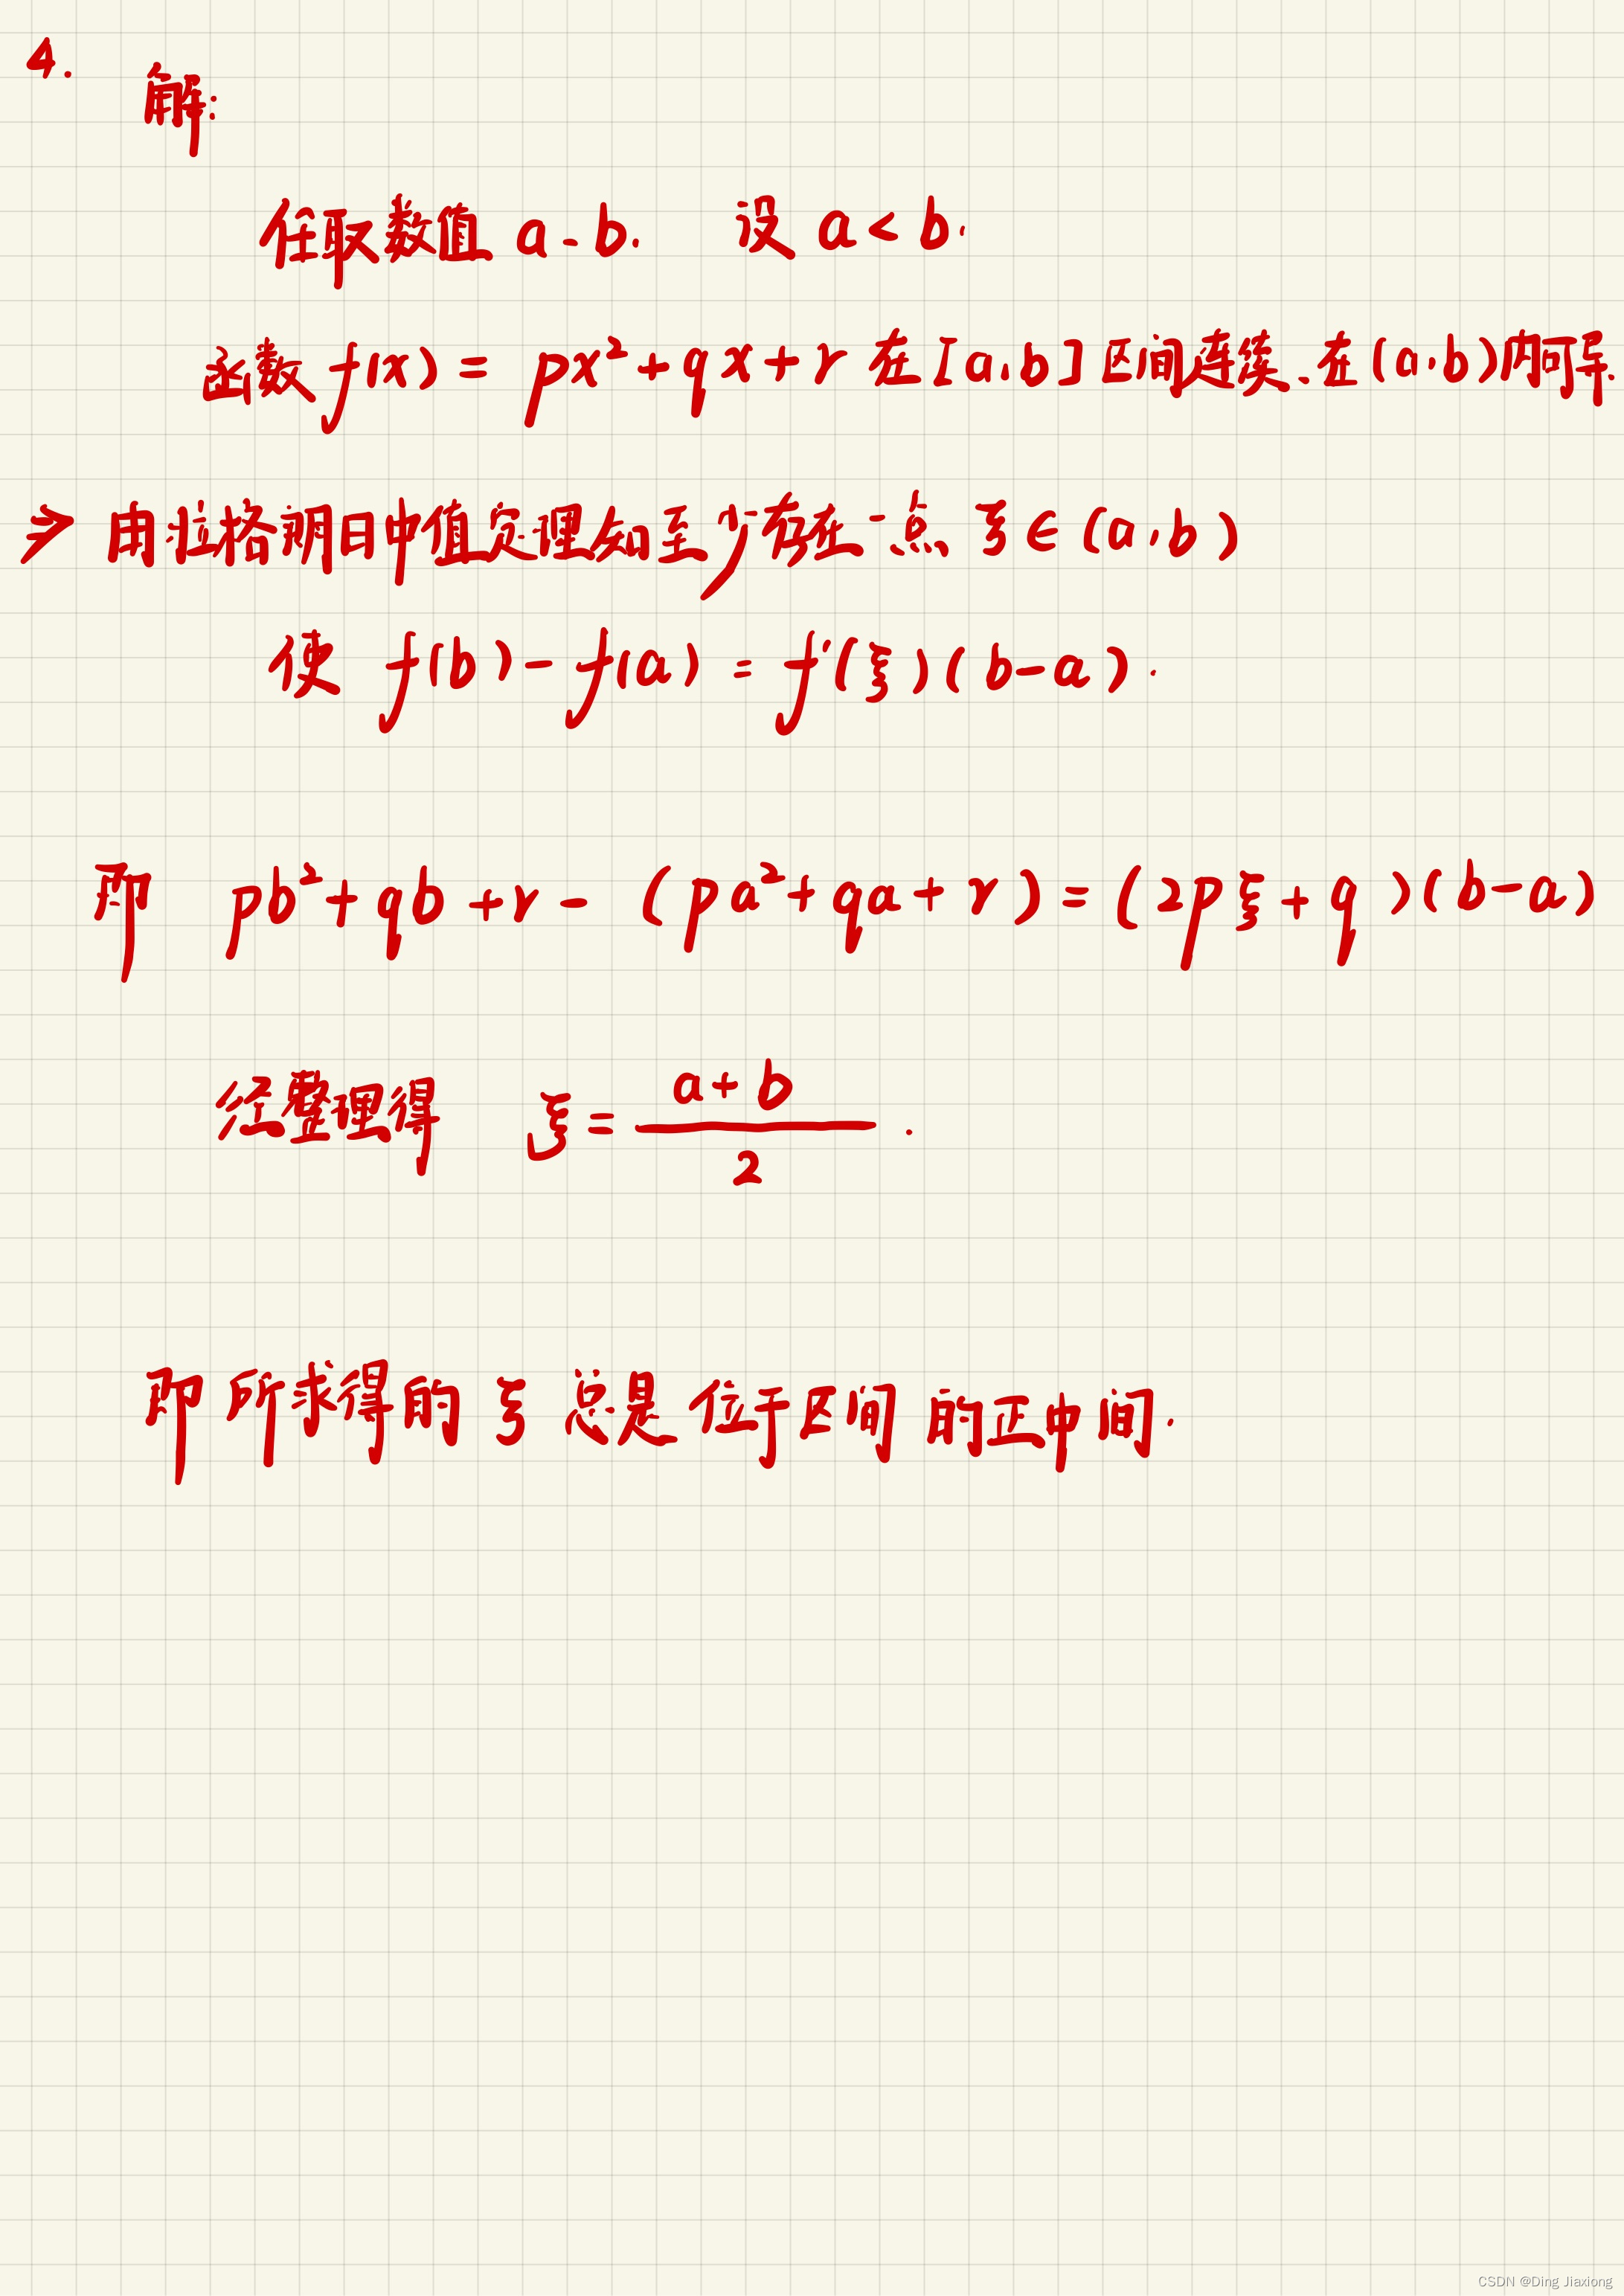 4.
解:
任取数值 a、b. 设 a<b.
函数 f(x) = px²+qx+r 在[a,b]区间连续、在(a,b)内可导.
⇒ 由拉格朗日中值定理知至少存在一点 ξ∈(a,b)
使 f(b)-f(a) = f'(ξ)(b-a).
即 pb²+qb+r - (pa²+qa+r) = (2pξ+q)(b-a)
经整理得 ξ = (a+b)/2 .
即所求得的 ξ 总是位于区间的正中间.
CSDN @Ding Jiaxiong